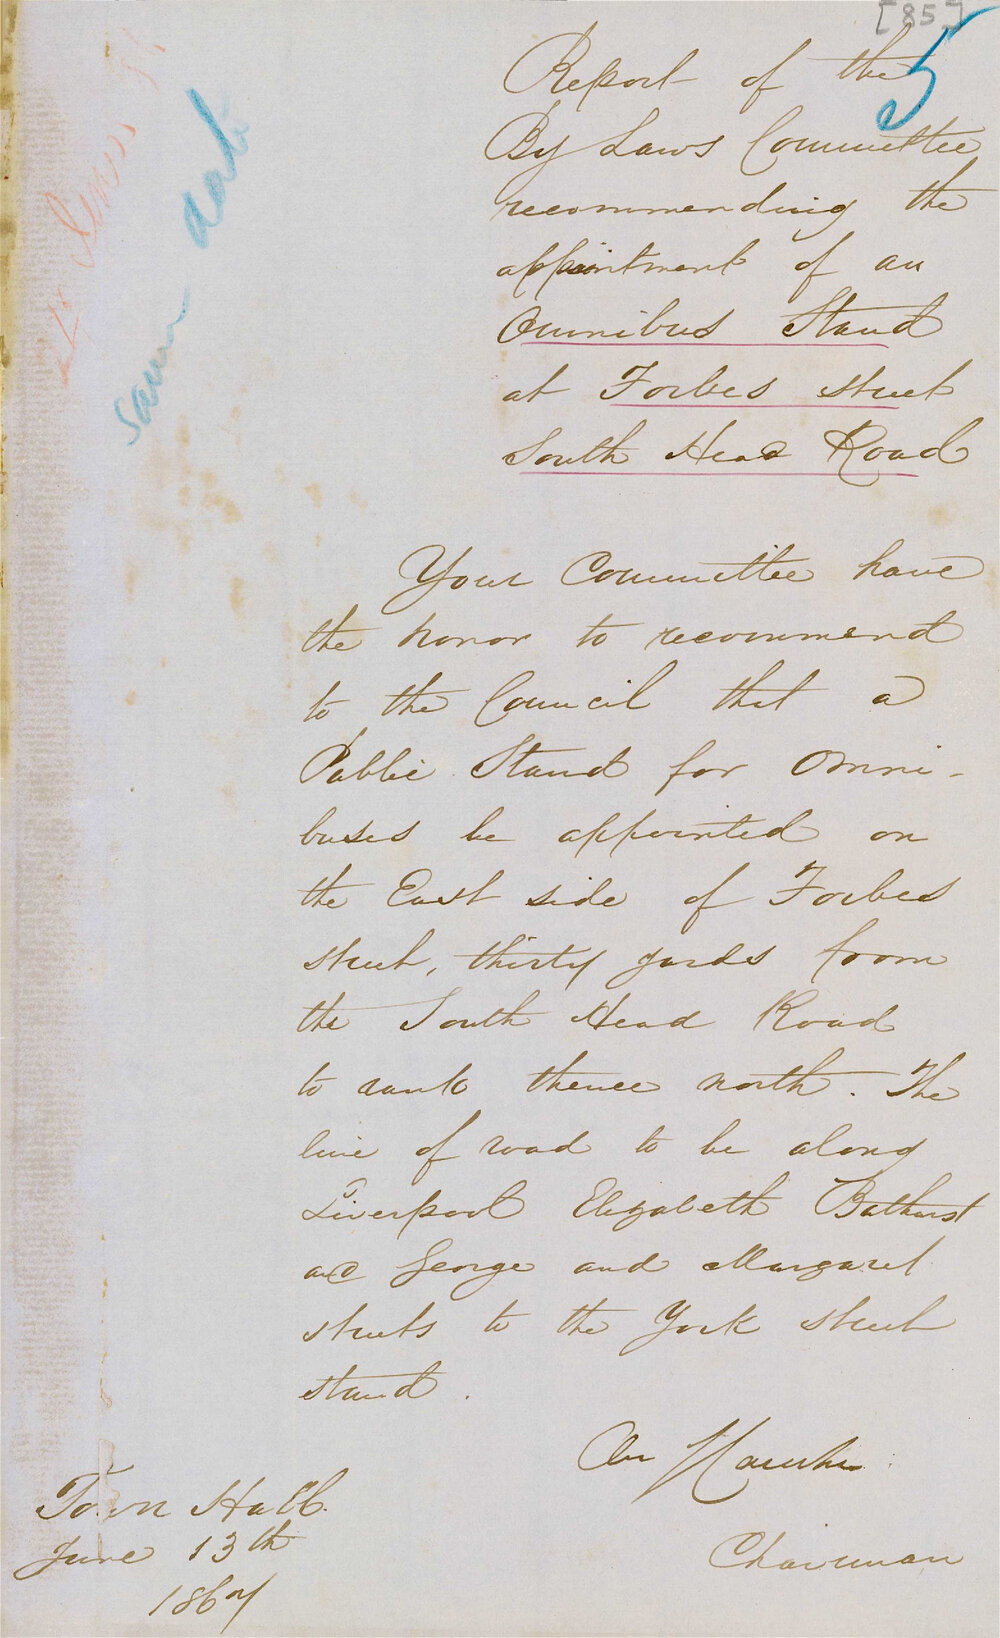 [85]
5
Report of the
By Laws Committee
recommending the
appointment of an
Omnibus Stand
at Forbes street
South Head Road
same date
Your Committee have
the honor to recommend
to the Council that a
Public Stand for Omni-
buses be appointed on
the East side of Forbes
street, thirty yards from
the South Head Road
to rank thence north. The
line of road to be along
Liverpool Elizabeth Bathurst
and George and Margaret
streets to the York street
stand.
Chairman
Town Hall.
June 13th
1867